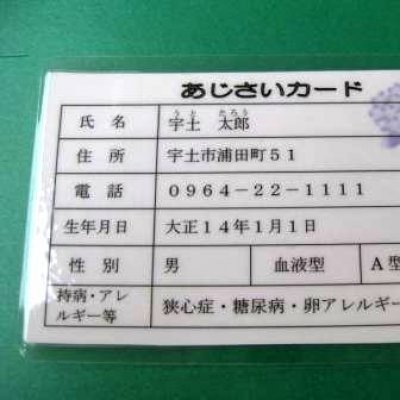 あじさいカード
うと たろう
氏名 宇土 太郎
住所 宇土市浦田町51
電話 0964-22-1111
生年月日 大正14年1月1日
性別 男 血液型 A型
持病・アレルギー等 狭心症・糖尿病・卵アレルギー